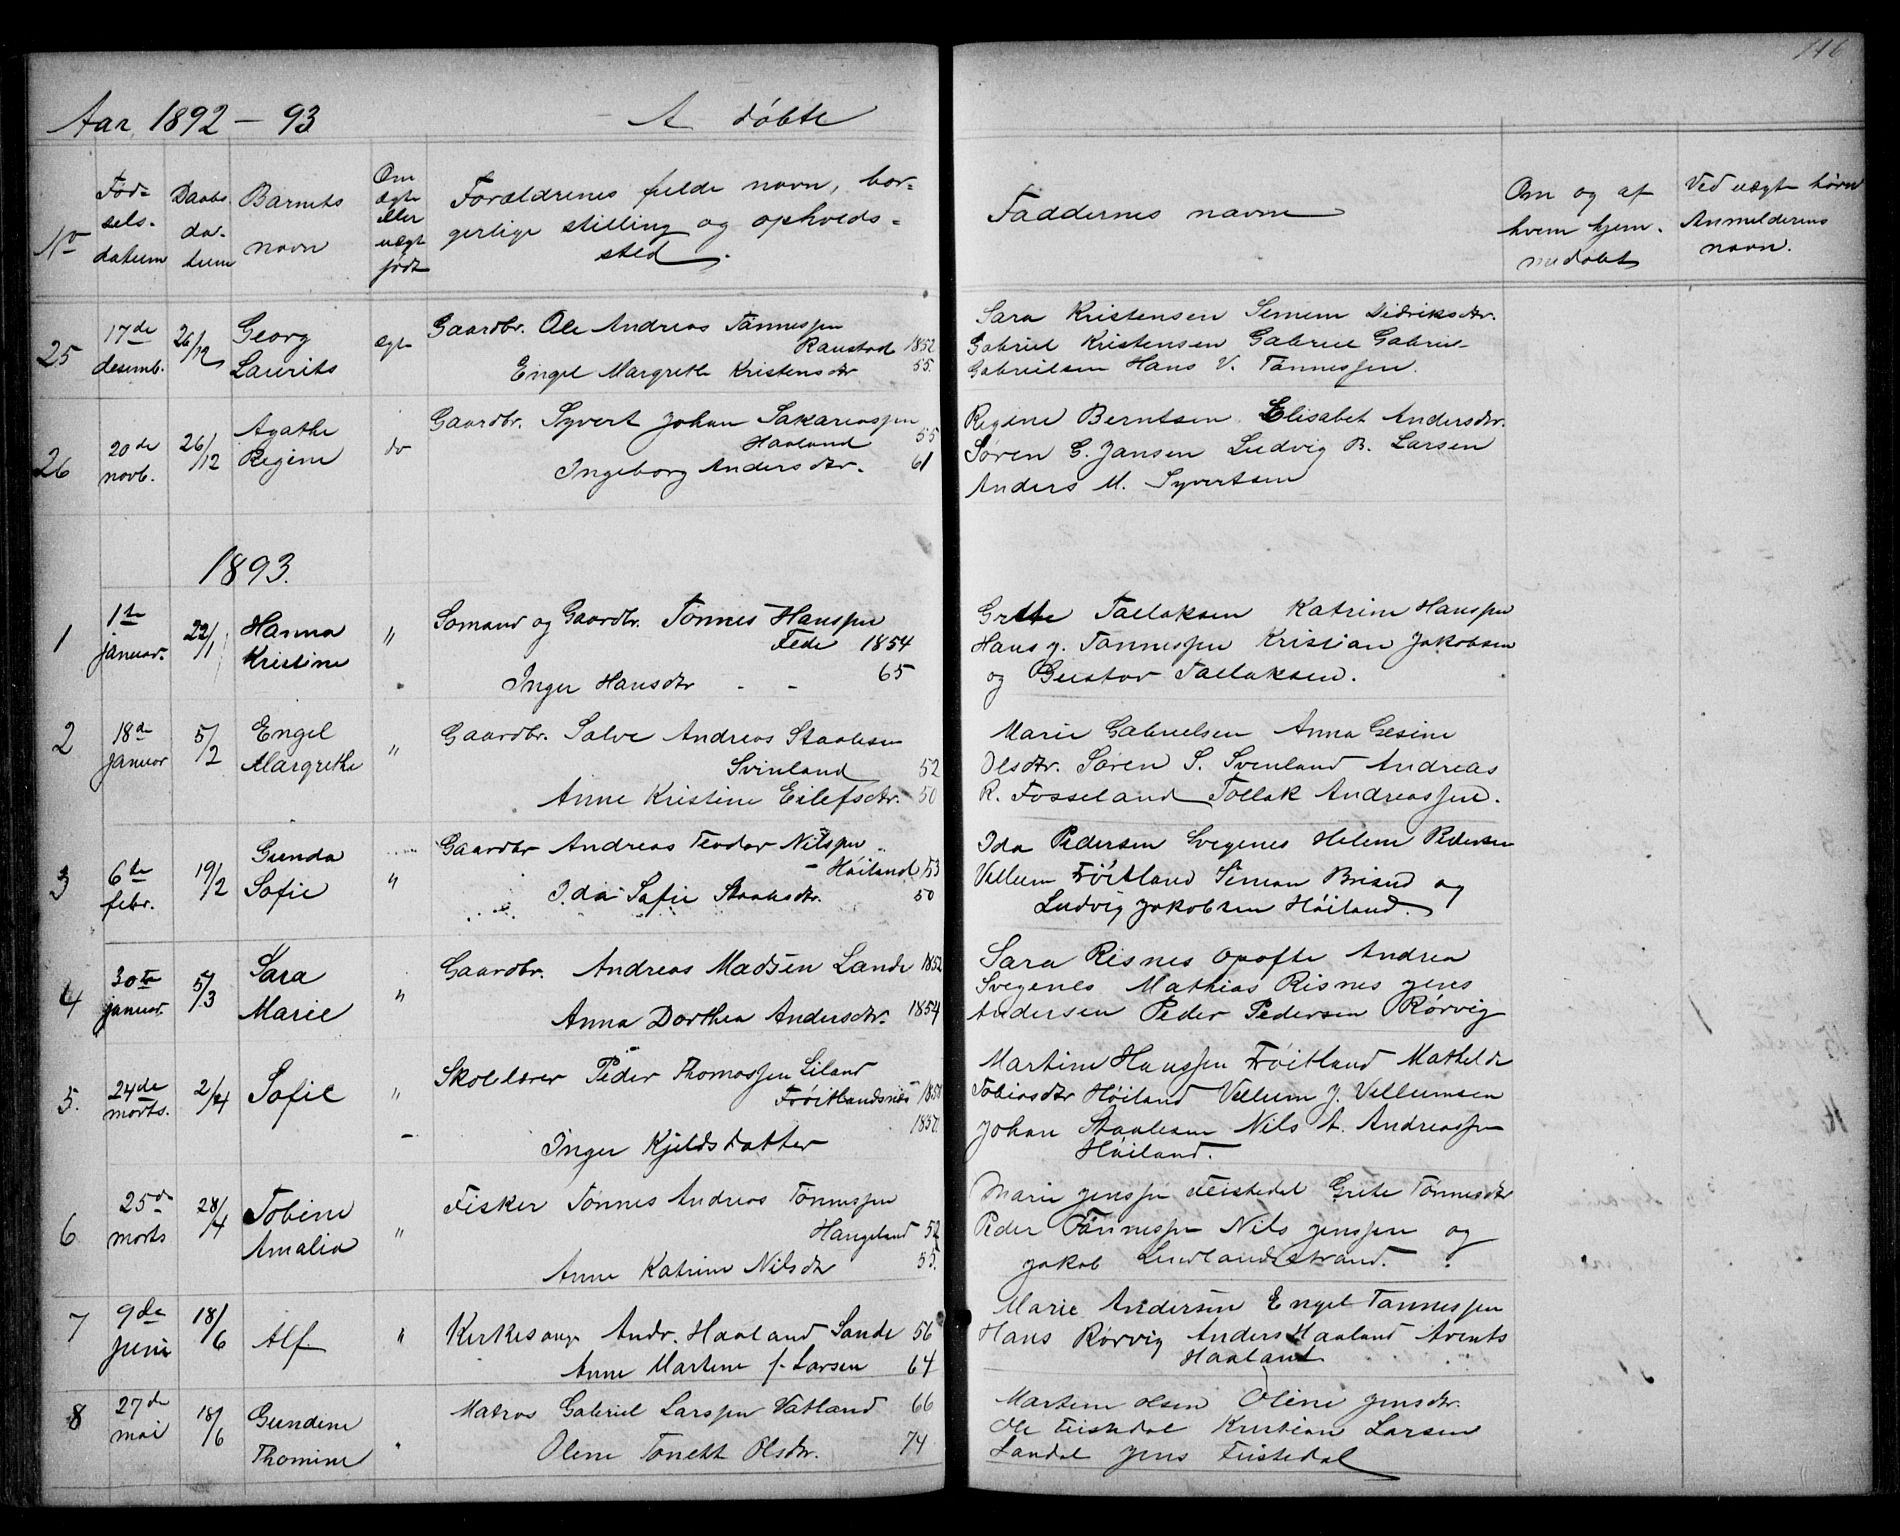 116
Aar 1892 - 93
A døbte
No
Fød-
sels-
datum
Daabs
da-
tum
Barnets
navn
Om
ægte
eller
uægt
født
Forældrenes fulde navn, bor-
gerlige stilling og opholds-
sted.
Faddernes navne
Om og af
hvem hjem-
medøbt
Ved uægte børn
Anmelderens
navn.
25
17de
desemb.
26/12
Georg
Laurits
ægte
Gaardbr. Ole Andreas Tønnessen
Raustad 1852
Engel Margrethe Kristensdtr 55.
Sara Kristensen Didriksdtr.
Gabriel Kristensen Gabriel Gabriel-
Gabrielsen Hans V. Tønnessen.
26
20de
novb.
26/12
Agathe
Regine
do
Gaardbr. Syvert Johan Sakariassen
Haaland 55
Ingeborg Andersdtr. 61
Regine Berntsen Elisabet Andersdtr.
Søren G. Jansen Ludvig B. Larsen
Anders M. Syvertsen
1893.
1
1te
januar.
22/1
Hanna
Kristine
"
Sømand og Gaardbr. Tønnes Hanssen
Fede 1854
Inger Hansdtr - - 65
Grete Tallaksen Katrine Hanssen
Hans J. Tønnessen Kristian Jakobsen
og Gustav Tallaksen.
2
18de
januar
5/2
Engel
Margrethe
"
Gaardbr. Salve Andreas Staalesen
Svinland 52
Anne Kristine Eilefsdtr. 50
Marie Gabrielsen Anna Gesine
Olsdtr. Søren S. Svenland Andreas
R. Fosseland Tollak Andreassen.
3
6te
febr.
19/2
Gunda
Sofie
"
Gaardbr Andreas Teodor Nilssen
- Høiland 53
Ida Sofie Staalesdtr. 50
Ida Pedersen Svegenes Helene Pedersen
Vellum Frøitland Simon Brisud og
Ludvig Jakobsen Høiland.
4
30te
januar.
5/3
Sara
Marie
"
Gaardbr. Andreas Madsen Lande 1852
Anna Dorthea Andersdtr. 1854
Sara Risnes Opofte Andrea
Svegenes Mathias Risnes Jens
Andersen Peder Pedersen Rørvig
5.
24de
marts.
2/4
Sofie
"
Skolelærer Peder Thomassen Eiland
Frøitlandsnes
Inger Kjeldsdatter
Martine Hanssen Frøitland Mathilde
Tobiasdtr Høiland Vellum J. Vellumsen
Johan Staalesen Nils A. Andreassen
Høiland.
6
25de
marts
28/4
Tobine
Amalia
"
Fisker Tønnes Andreas Tønnessen
Haugeland 52
Anne Katrine Nilsdtr 55.
Marie Jenssen Feistedal Grete Tønnesdtr
Peder Tønnessen Nils Jenssen og
Jakob Lundlandstrand.
7
9de
Juni
18/6
Alf
"
Kirkesanger Andr. Haaland Sande 56
Anne Martine f. Larsen 64
Marie Andersen Engel Tønnessen
Hans Rørvig Anders Haaland Avents
Haaland
8
27de
mai
18/6
Gundine
Thomine
"
Matros Gabriel Larssen Vatland 66
Olene Tonette Olsdtr. 74
Martine Olsen Oline Jensdtr.
Ole Feistedal Kristian Larsen
Landal Jens Feistedal